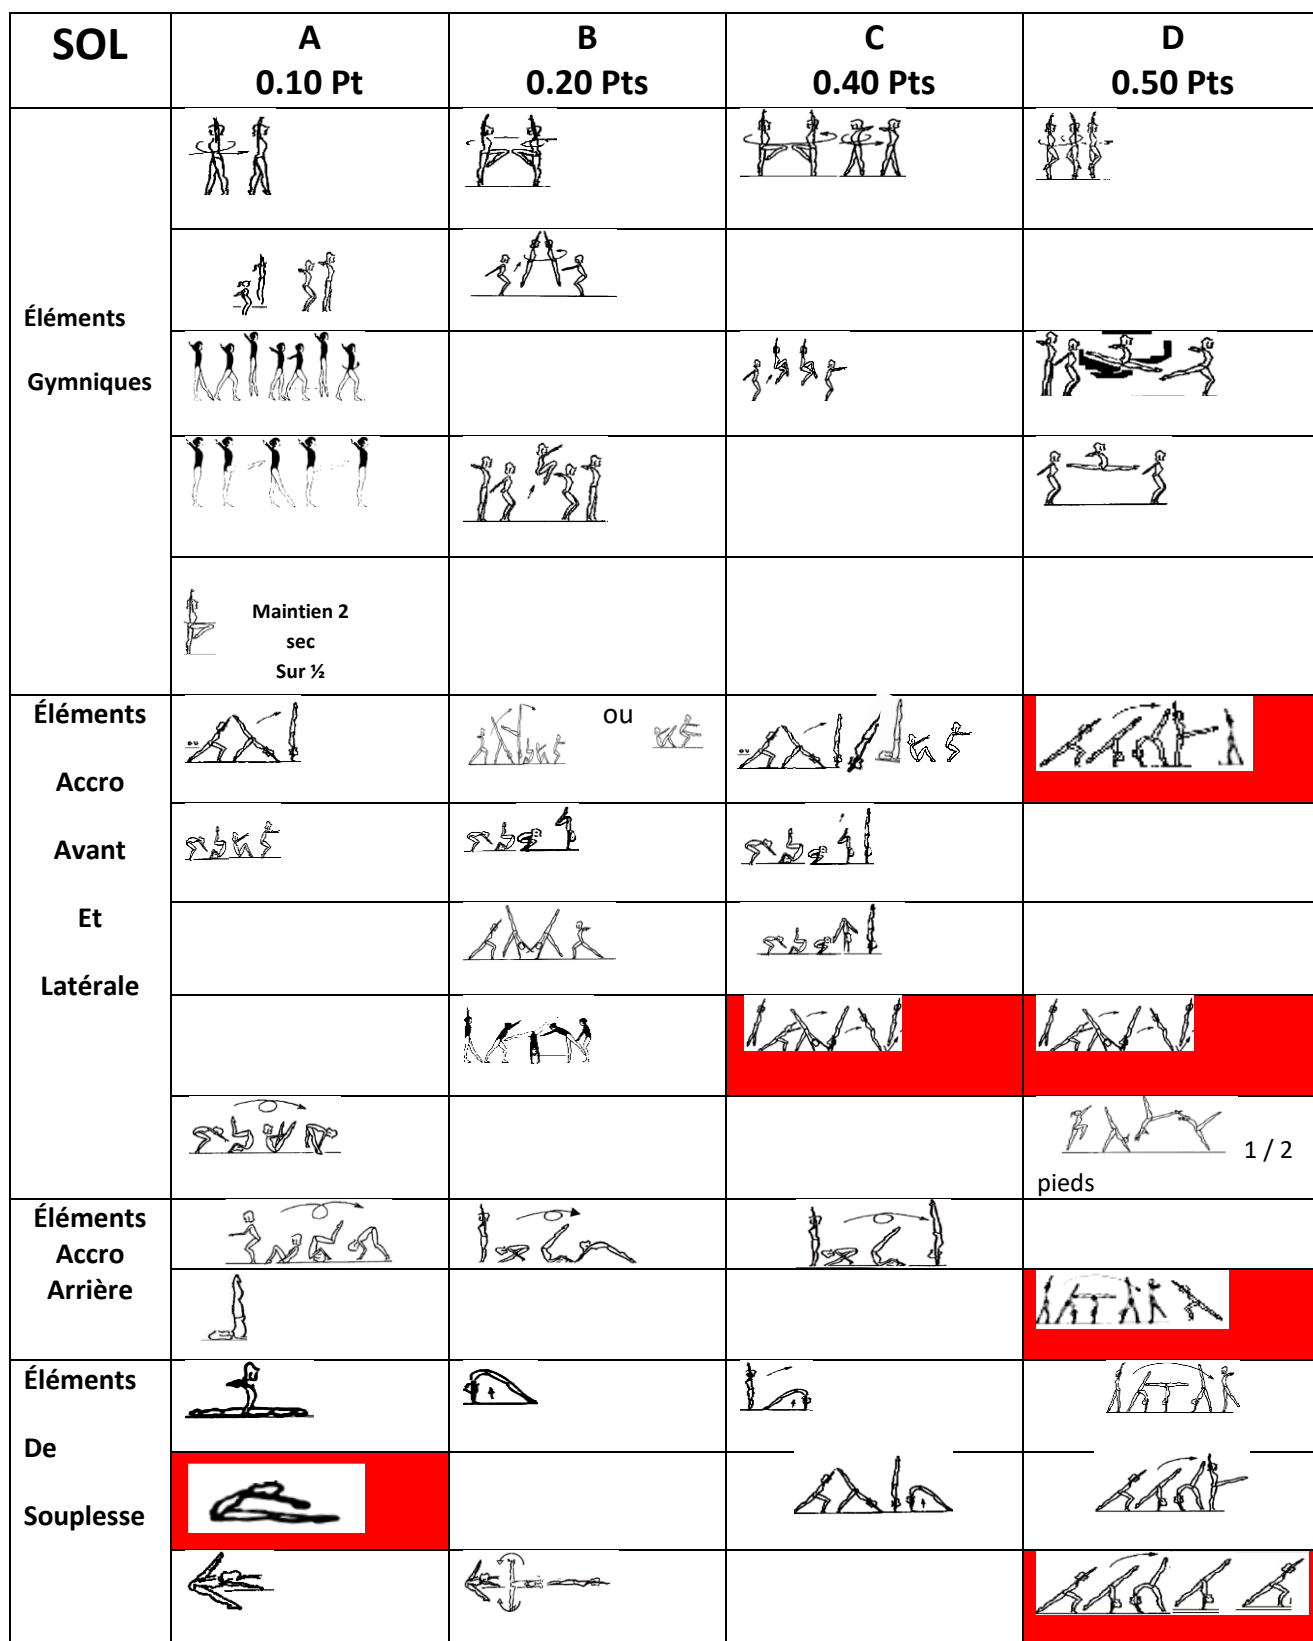 SOL
A
0.10 Pt
B
0.20 Pts
C
0.40 Pts
D
0.50 Pts
Éléments
Gymniques
Maintien 2
sec
Sur ½
Éléments
Accro
Avant
Et
Latérale
ou
1 / 2
pieds
Éléments
Accro
Arrière
Éléments
De
Souplesse